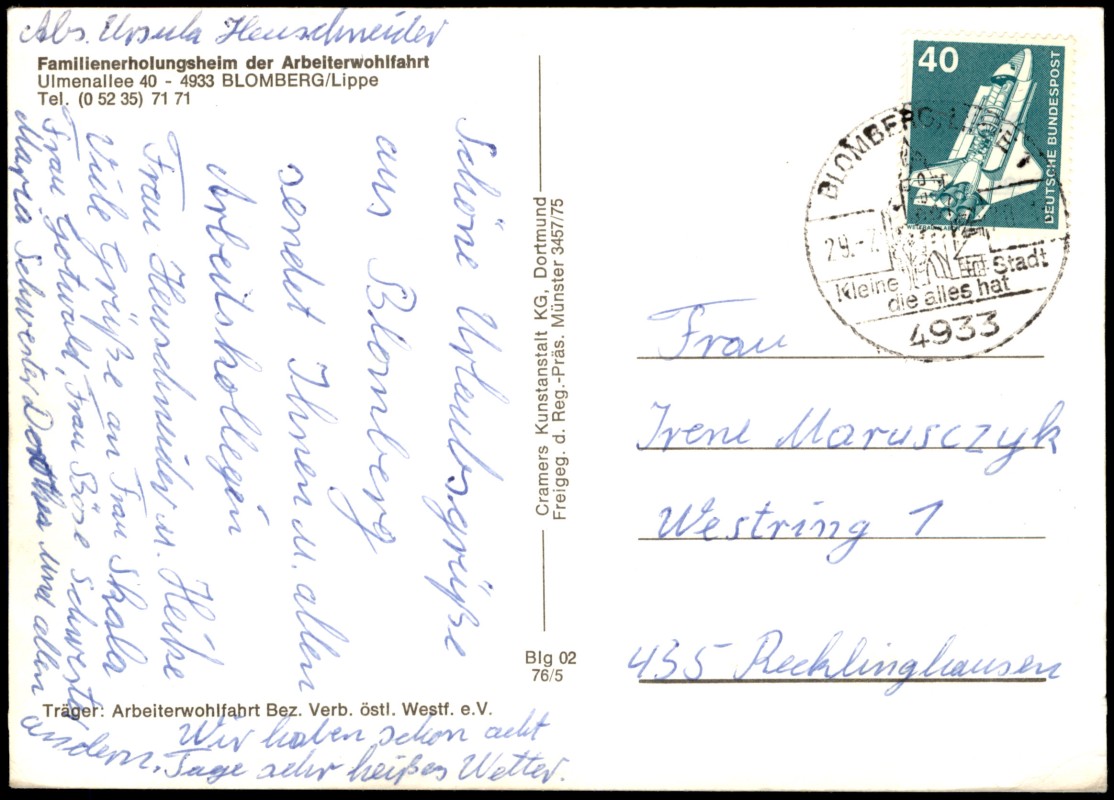 Abs. Ursula Heuschneider
Familienerholungsheim der Arbeiterwohlfahrt
Ulmenallee 40 - 4933 BLOMBERG/Lippe
Tel. (0 52 35) 71 71
Schöne Urlaubsgrüße
aus Blomberg
sendet Ihnen u. allen
Arbeitskollegen
Frau Heuschneider u. Heike
Viele Grüße an Frau Skala
Frau Gotwald, Frau Böse Schwester
Maria Schwester Dorothea und allen
andern.
Wir haben schon acht
Tage sehr heißes Wetter.
Träger: Arbeiterwohlfahrt Bez. Verb. östl. Westf. e.V.
Cramers Kunstanstalt KG, Dortmund
Freigeg. d. Reg.-Präs. Münster 3457/75
Blg 02
76/5
40
DEUTSCHE BUNDESPOST
BLOMBERG, L
29.-7
Kleine Stadt
die alles hat
4933
Frau
Irene Marusczyk
Westring 1
435 Recklinghausen